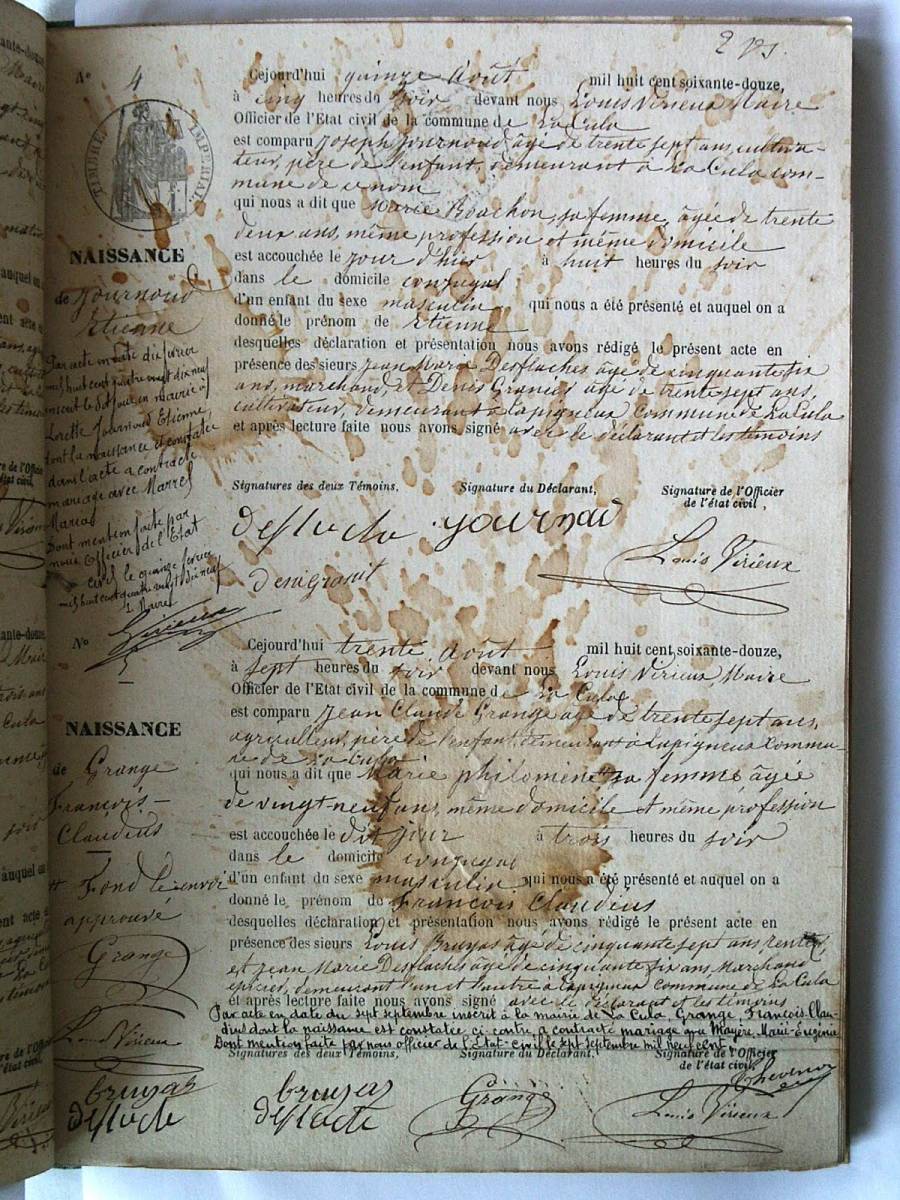 2 vs.
N° 4
TIMBRE IMPERIAL
Cejourd'hui quinze Août mil huit cent soixante-douze,
à cinq heures du soir devant nous Louis Virieux Maire
Officier de l'Etat civil de la commune de La Cula
est comparu Joseph Journoud âgé de trente sept ans, cultiva-
teur, père de l'enfant, demeurant à La Cula com-
mune de ce nom
qui nous a dit que Marie Bonchon, sa femme, âgée de trente
deux ans, même profession et même domicile
est accouchée le jour d'hier à huit heures du soir
dans le domicile conjugal
d'un enfant du sexe masculin qui nous a été présenté et auquel on a
donné le prénom de Etienne
desquelles déclaration et présentation nous avons rédigé le présent acte en
présence des sieurs Jean Marie Desflaches âgé de cinquante six
ans, marchand, et Denis Granier âgé de trente sept ans,
cultivateur, demeurant à Lapigneux Commune de La Cula
et après lecture faite nous avons signé avec le déclarant et les témoins
NAISSANCE
de Journoud
Etienne
Par acte en date dix février
mil huit cent quatre vingt dix neuf
inscrit le dit jour en mairie à
Lorette Journoud Etienne
dont la naissance est constatée
dans l'acte a contracté
mariage avec Marrel
Maria
Dont mention faite par
nous Officier de l'Etat
civil le quinze février
mil huit cent quatre vingt dix neuf
Le Maire
Virieux
Signatures des deux Témoins, Signature du Déclarant, Signature de l'Officier
de l'état civil,
desflache Journoud
Louis Virieux
N° 5
Cejourd'hui trente Août mil huit cent soixante-douze,
à sept heures du soir devant nous Louis Virieux, Maire
Officier de l'Etat civil de la commune de La Cula
est comparu Jean Claude Grange âgé de trente sept ans,
agriculteur, père de l'enfant, demeurant à Lapigneux Commu-
ne de La Cula
qui nous a dit que Marie philomène # sa femme âgée
de vingt neuf ans, même domicile et même profession
est accouchée le dit jour à trois heures du soir
dans le domicile conjugal
d'un enfant du sexe masculin qui nous a été présenté et auquel on a
donné le prénom de François Claudius
desquelles déclaration et présentation nous avons rédigé le présent acte en
présence des sieurs Louis Bruyas âgé de cinquante sept ans rentier
et Jean Marie Desflaches âgé de cinquante six ans, Marchand
épicier, demeurant l'un et l'autre à Lapigneux Commune de La Cula
et après lecture faite nous avons signé avec le déclarant et les témoins
Par acte en date du sept septembre inscrit à la mairie de La Cula, Grange, François-Clau-
dius dont la naissance est constatée ci-contre, a contracté mariage avec Mayère, Marie-Eugénie
Dont mention faite par nous officier de l'Etat-Civil le sept septembre mil neuf cent
NAISSANCE
de Grange
François-
Claudius
# Fond le renvoi
approuvé
Grange
Louis Virieux
bruyas
desflache
Signatures des deux Témoins, Signature du Déclarant, Signature de l'Officier
de l'état civil,
Thevenon
bruyas Grange Louis Virieux
desflache